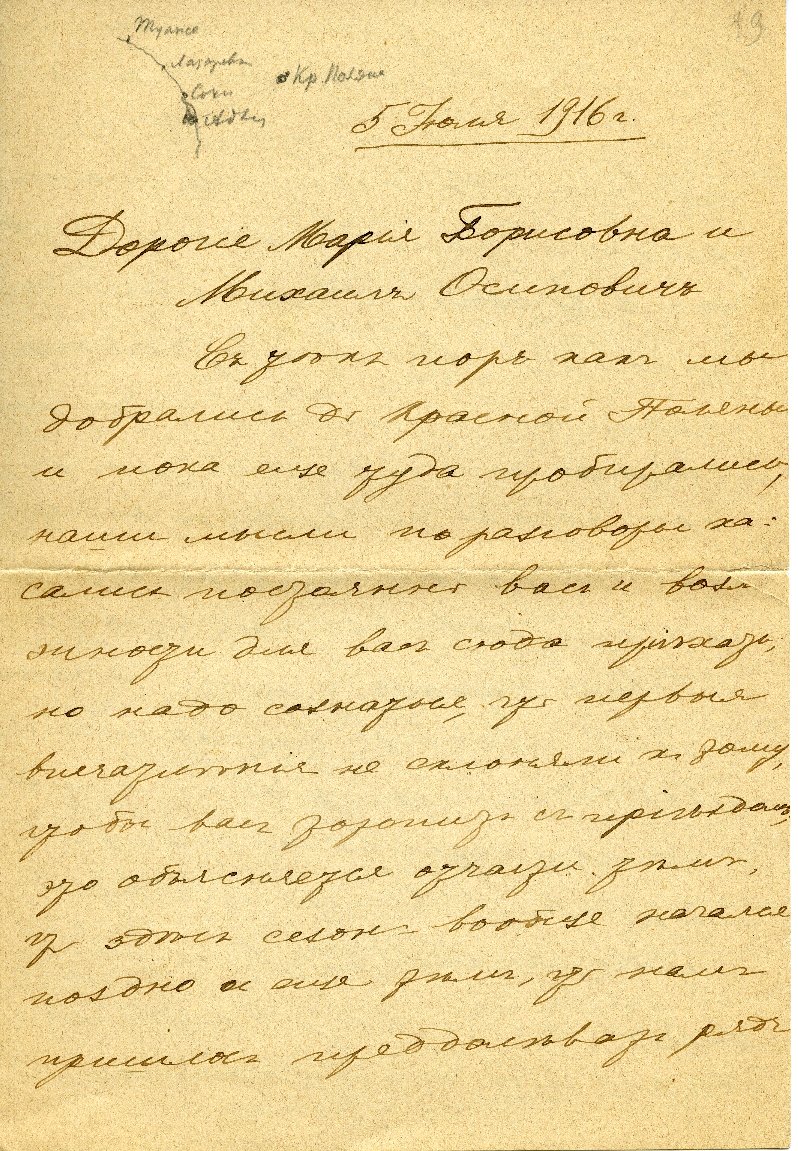 Туапсе
Лазаревк
Сочи
Адлер
Кр Поляна
19
5 Іюля 1916 г.
Дорогіе Марія Борисовна и
Михаилъ Осиповичъ
Съ тѣхъ поръ какъ мы
добрались до Красной Поляны
и пока еще туда пробирались,
наши мысли и разговоры ка-
сались постоянно васъ и воз
можности для васъ сюда пріѣхать,
но надо сознаться, что первыя
впечатлѣнія не склоняли къ тому,
чтобы васъ торопить съ пріѣздомъ,
это объясняется отчасти тѣмъ,
что здѣсь сезонъ вообще начался
поздно и еще тѣмъ, что намъ
пришлось преодолѣвать рядъ